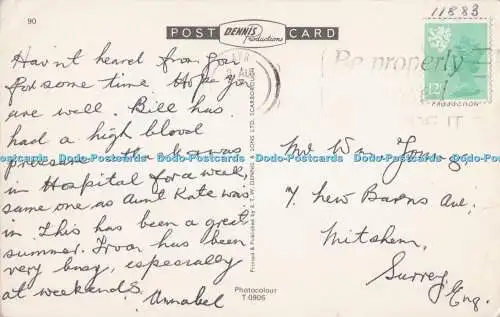 90
11883
POST DENNIS Productions CARD
Hav'nt heard from you
for some time. Hope you
are well. Bill has
had a high blood
pressure tho he was
in Hospital for a week,
same one as Aunt Kate was
in. This has been a great
summer. Ivor has been
very busy, especially
at weekends.
Annabel
Be properly
AUG
12½
Printed & Published by E. T. W. DENNIS & SONS LTD. SCARBOROUGH
Mr Wm Young,
7 New Barns Ave,
Mitcham,
Surrey,
Eng.
Photocolour
T 0905
Dodo-Postcards Dodo-Postcards Dodo-Postcards Dodo-Postcards Dodo-Postcards